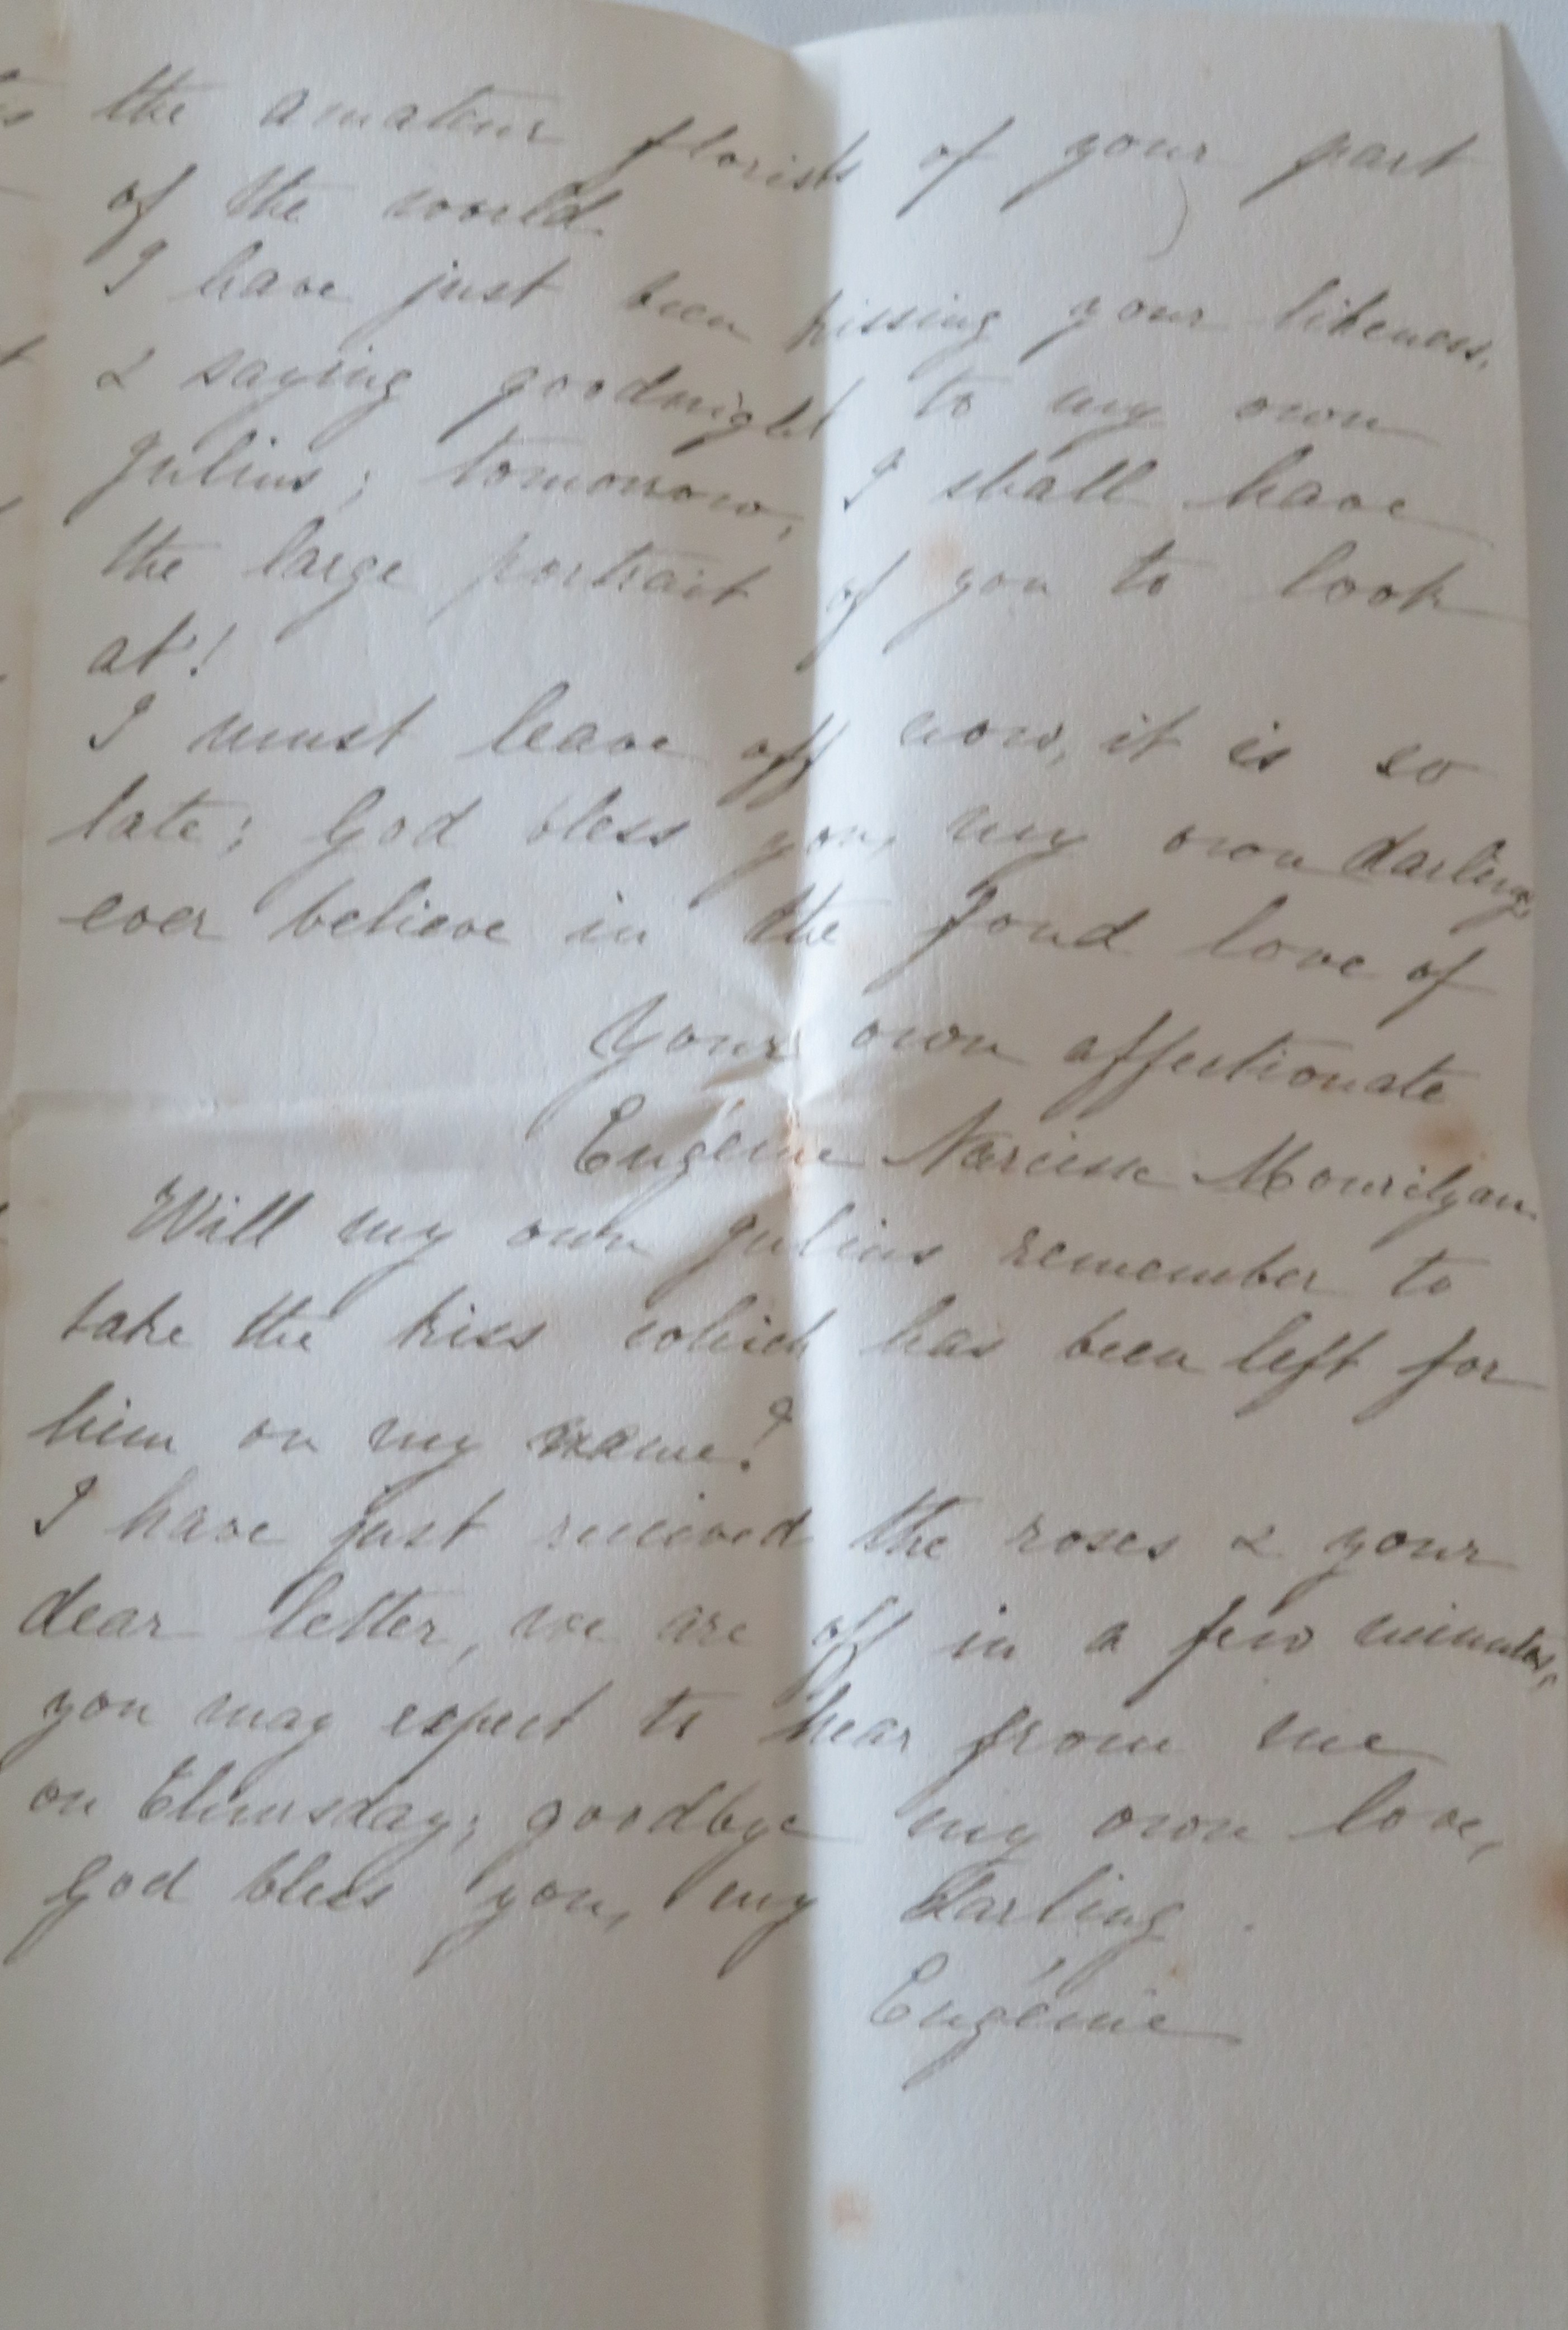 the amateur florists of your part
of the world.
I have just been kissing your likeness,
& saying goodnight to my own
Julius; tomorrow, I shall have
the large portrait of you to look
at!
I must leave off now, it is so
late; God bless you, my own darling,
ever believe in the fond love of
Your own affectionate
Eugénie Narcisse Mourilyan.
Will my own Julius remember to
take the kiss which has been left for
him on my name?
I have just recieved the roses & your
dear letter, we are off in a few minutes,
you may expect to hear from me
on Thursday; goodbye my own love,
God bless you, my darling.
Eugénie